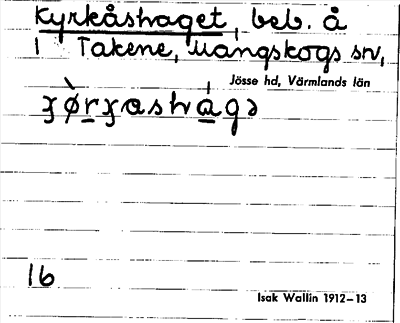 Kyrkåshaget, beb. å
1 Takene, Mangskogs sn,
Jösse hd, Värmlands län
16
Isak Wallin 1912–13